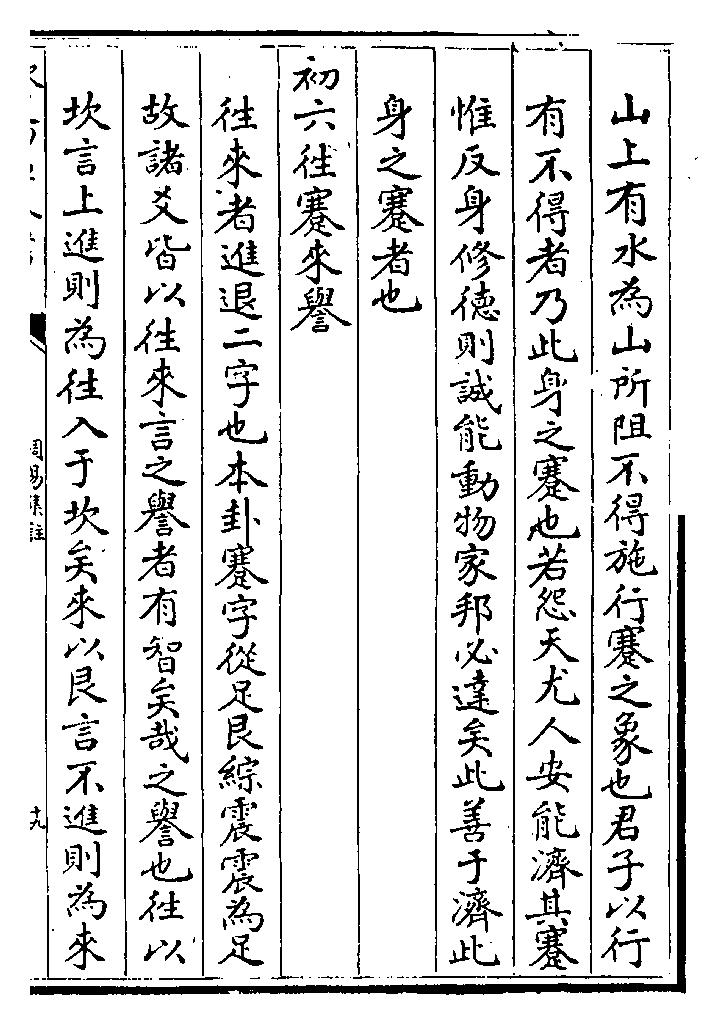 山上有水為山所阻不得施行蹇之象也君子以行
有不得者乃此身之蹇也若怨天尤人安能濟其蹇
惟反身修德則誠能動物家邦必達矣此善于濟此
身之蹇者也
初六往蹇來譽
往來者進退二字也本卦蹇字從足艮綜震震為足
故諸爻皆以往來言之譽者有智矣哉之譽也往以
坎言上進則為往入于坎矣來以艮言不進則為來
周易集註
十九